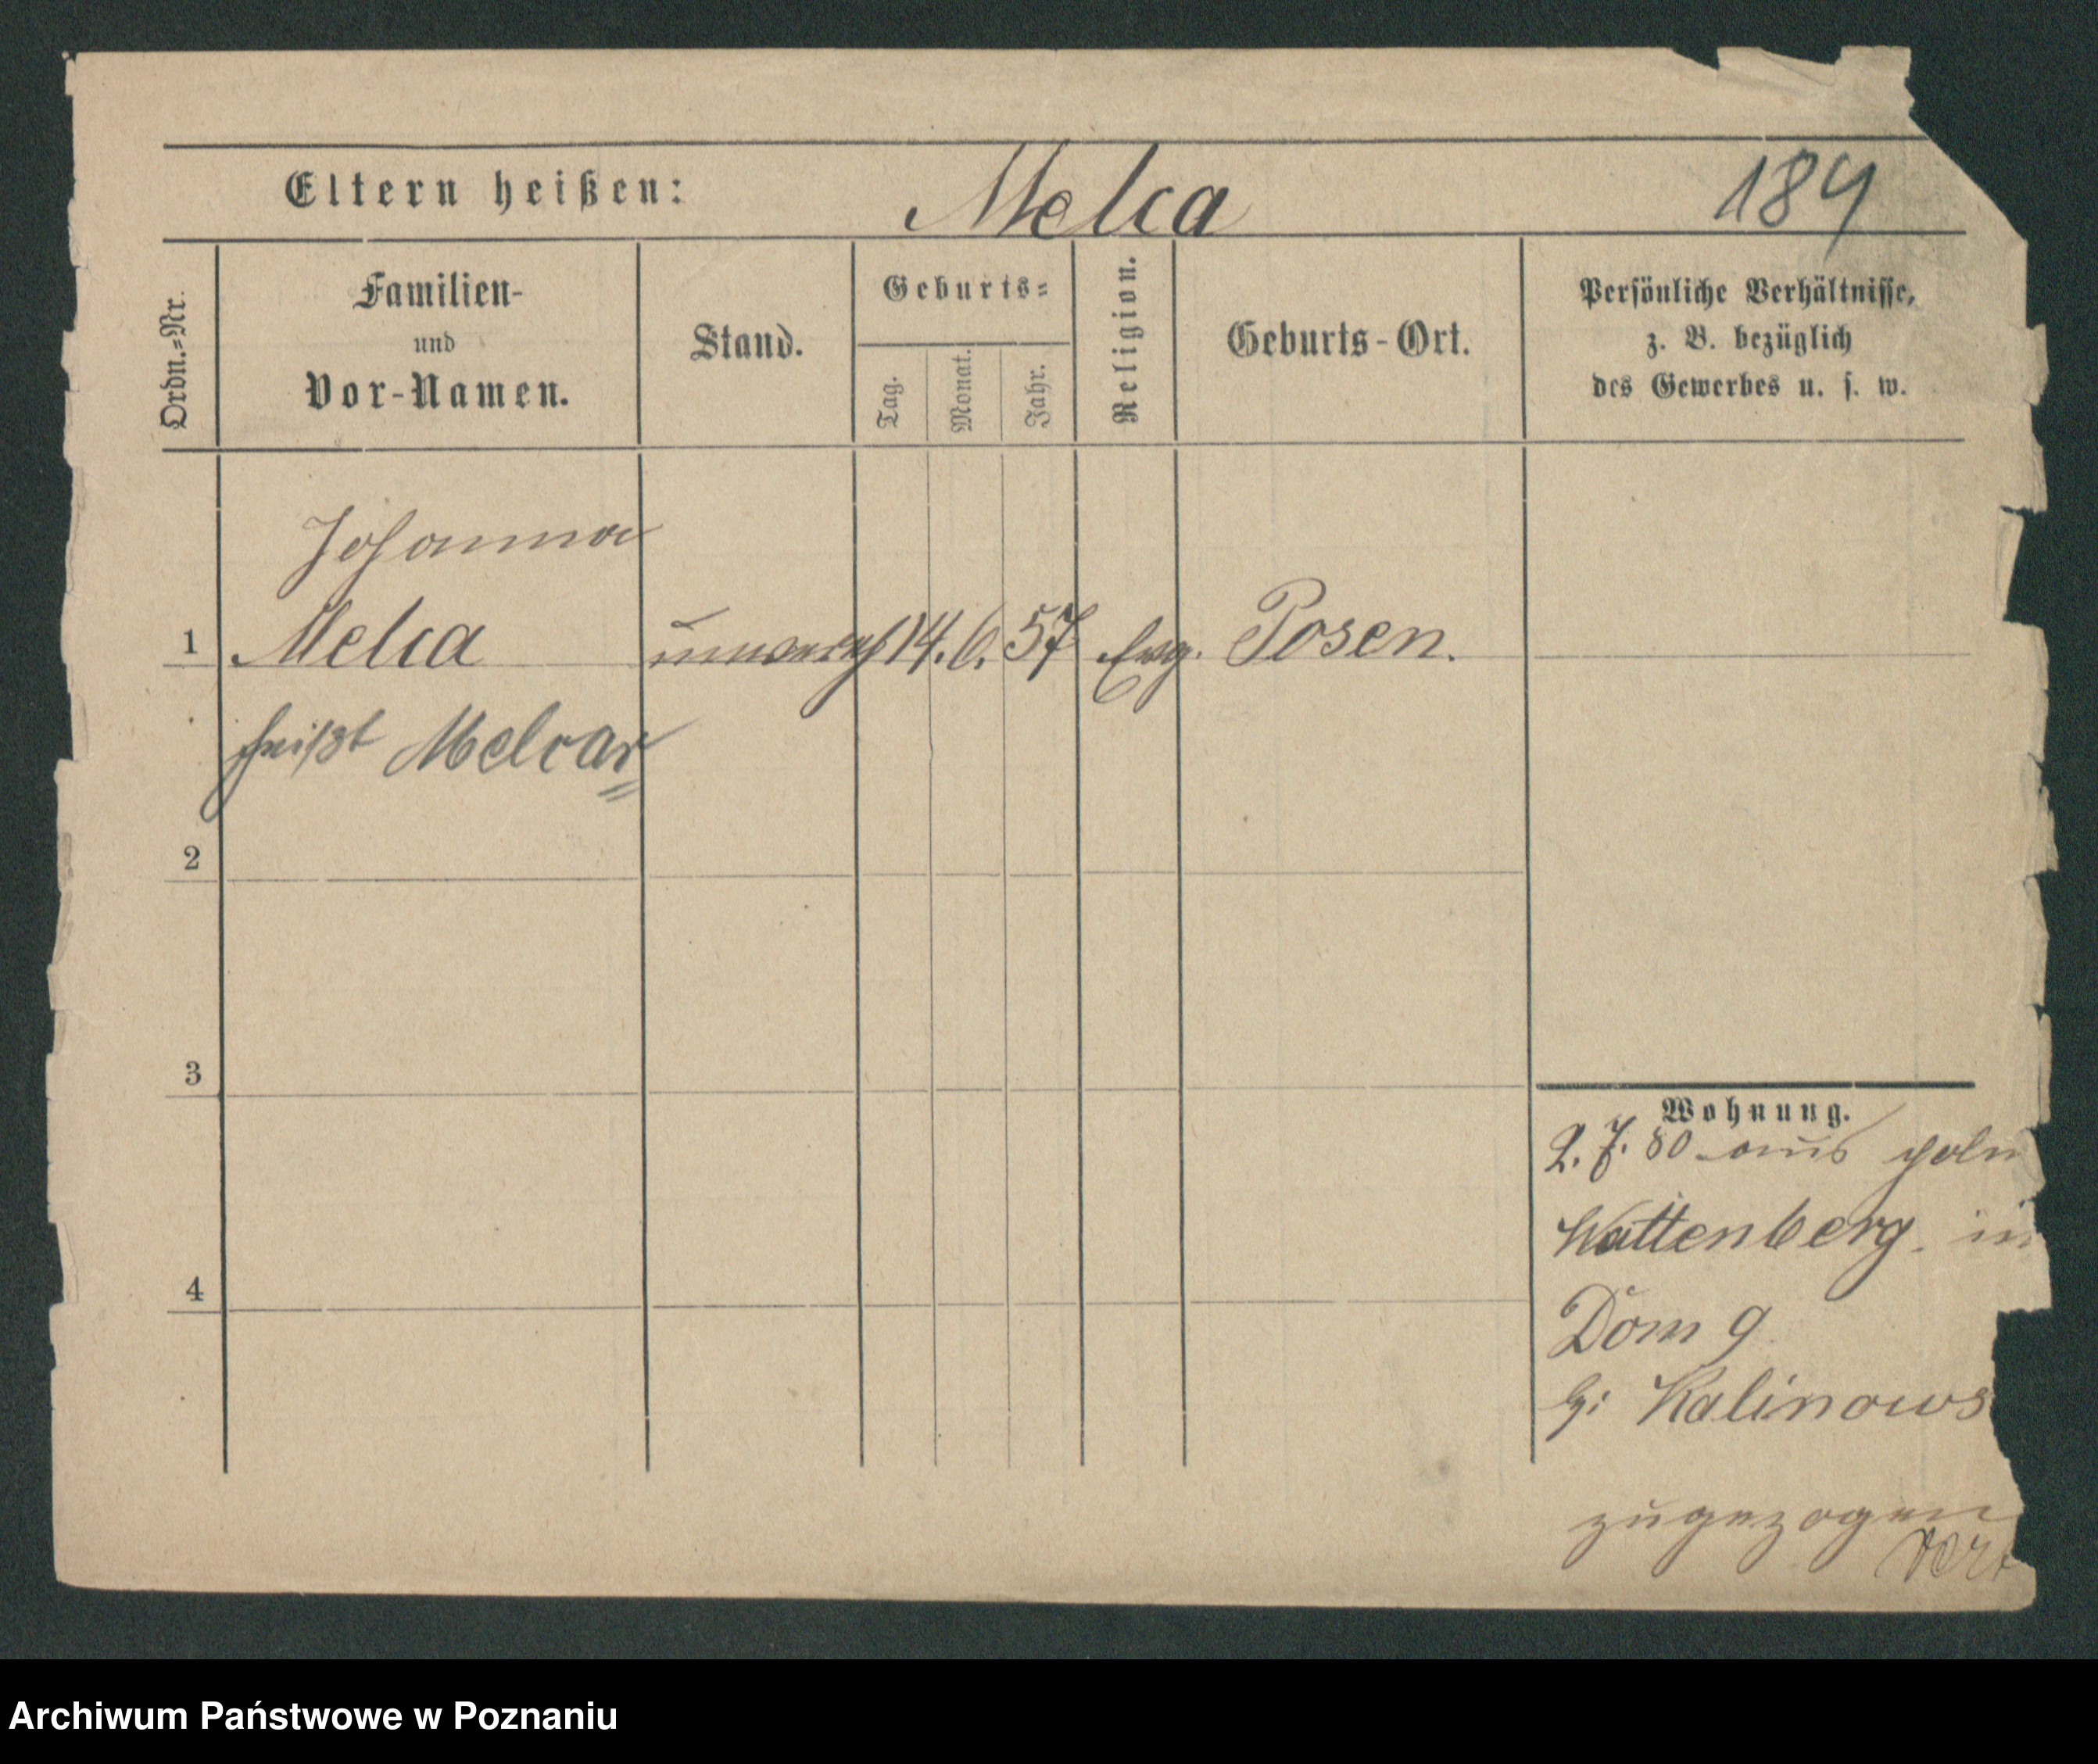 Eltern heißen: Melca 184
Ordn.-Nr.
Familien-
und
Vor-Namen.
Stand.
Geburts-
Tag.
Monat.
Jahr.
Religion.
Geburts-Ort.
Persönliche Verhältnisse,
z. B. bezüglich
des Gewerbes u. s. w.
Johanna
1 Melca unverh 14. 6. 57 Evg. Posen.
heißt Melcar
2
3
4
Wohnung.
2. 7. 80 aus poln
Wattenberg. in
Dom 9
b: Kalinows
zugezogen
Archiwum Państwowe w Poznaniu